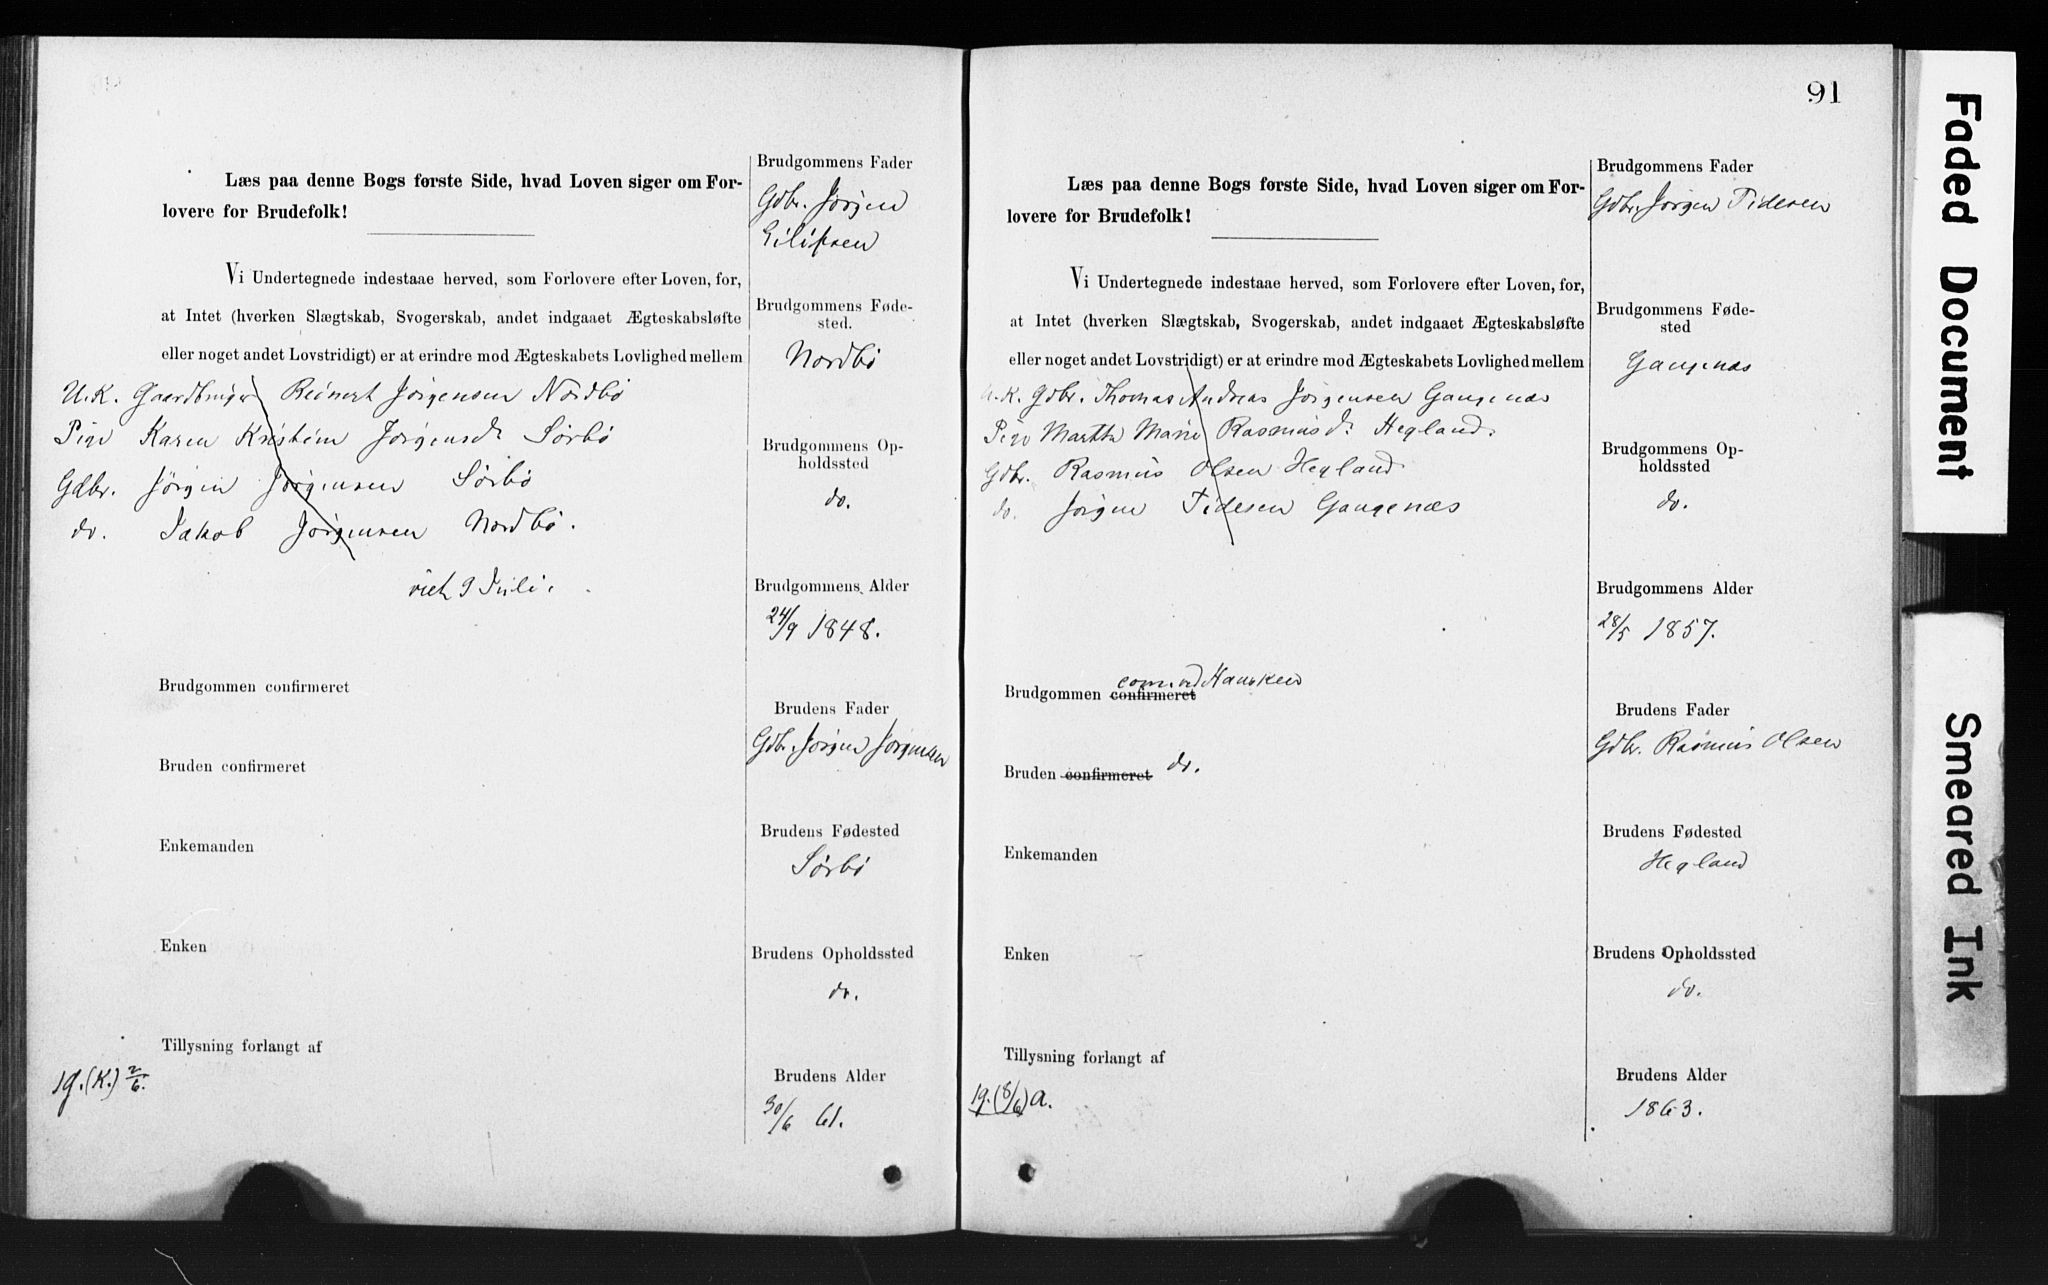 Læs paa denne Bogs første Side, hvad Loven siger om For-
lovere for Brudefolk!
Vi Undertegnede indestaae herved, som Forlovere efter Loven, for,
at Intet (hverken Slægtskab, Svogerskab, andet indgaaet Ægteskabsløfte
eller noget andet Lovstridigt) er at erindre mod Ægteskabets Lovlighed mellem
U.K. Gaardbruger Reinert Jørgensen Nordbø
Pige Karen Kristine Jørgensdt Sørbø
Gdbr. Jørgen Jørgensen Sørbø
do. Jakob Jørgensen Nordbø.
viet 9 Juli.
Brudgommen confirmeret
Bruden confirmeret
Enkemanden
Enken
Tillysning forlangt af
19.(K.) 2/6.
Brudgommens Fader
Gdbr. Jørgen
Eilifsen
Brudgommens Føde-
sted.
Nordbø
Brudgommens Op-
holdssted
do.
Brudgommens Alder
24/9 1848.
Brudens Fader
Gdbr. Jørgen Jørgensen
Brudens Fødested
Sørbø
Brudens Opholdssted
do.
Brudens Alder
30/6 61.
91
Læs paa denne Bogs første Side, hvad Loven siger om For-
lovere for Brudefolk!
Vi Undertegnede indestaae herved, som Forlovere efter Loven, for,
at Intet (hverken Slægtskab, Svogerskab, andet indgaaet Ægteskabsløfte
eller noget andet Lovstridigt) er at erindre mod Ægteskabets Lovlighed mellem
U.K. Gdbr. Thomas Andreas Jørgensen Gangenæs
Pige Martha Marie Rasmusdt Hegland.
Gdbr. Rasmus Olsen Hegland
do. Jørgen Tidesen Gangenæs
Brudgommen confirmeret com. ved Hausken
Bruden confirmeret do.
Enkemanden
Enken
Tillysning forlangt af
19.(8/6) a.
Brudgommens Fader
Gdbr. Jørgen Tidesen
Brudgommens Føde-
sted
Gangenæs
Brudgommens Op-
holdssted
do.
Brudgommens Alder
28/5 1857.
Brudens Fader
Gdbr. Rasmus Olsen
Brudens Fødested
Hegland
Brudens Opholdssted
do.
Brudens Alder
1863.
Faded Document
Smeared Ink